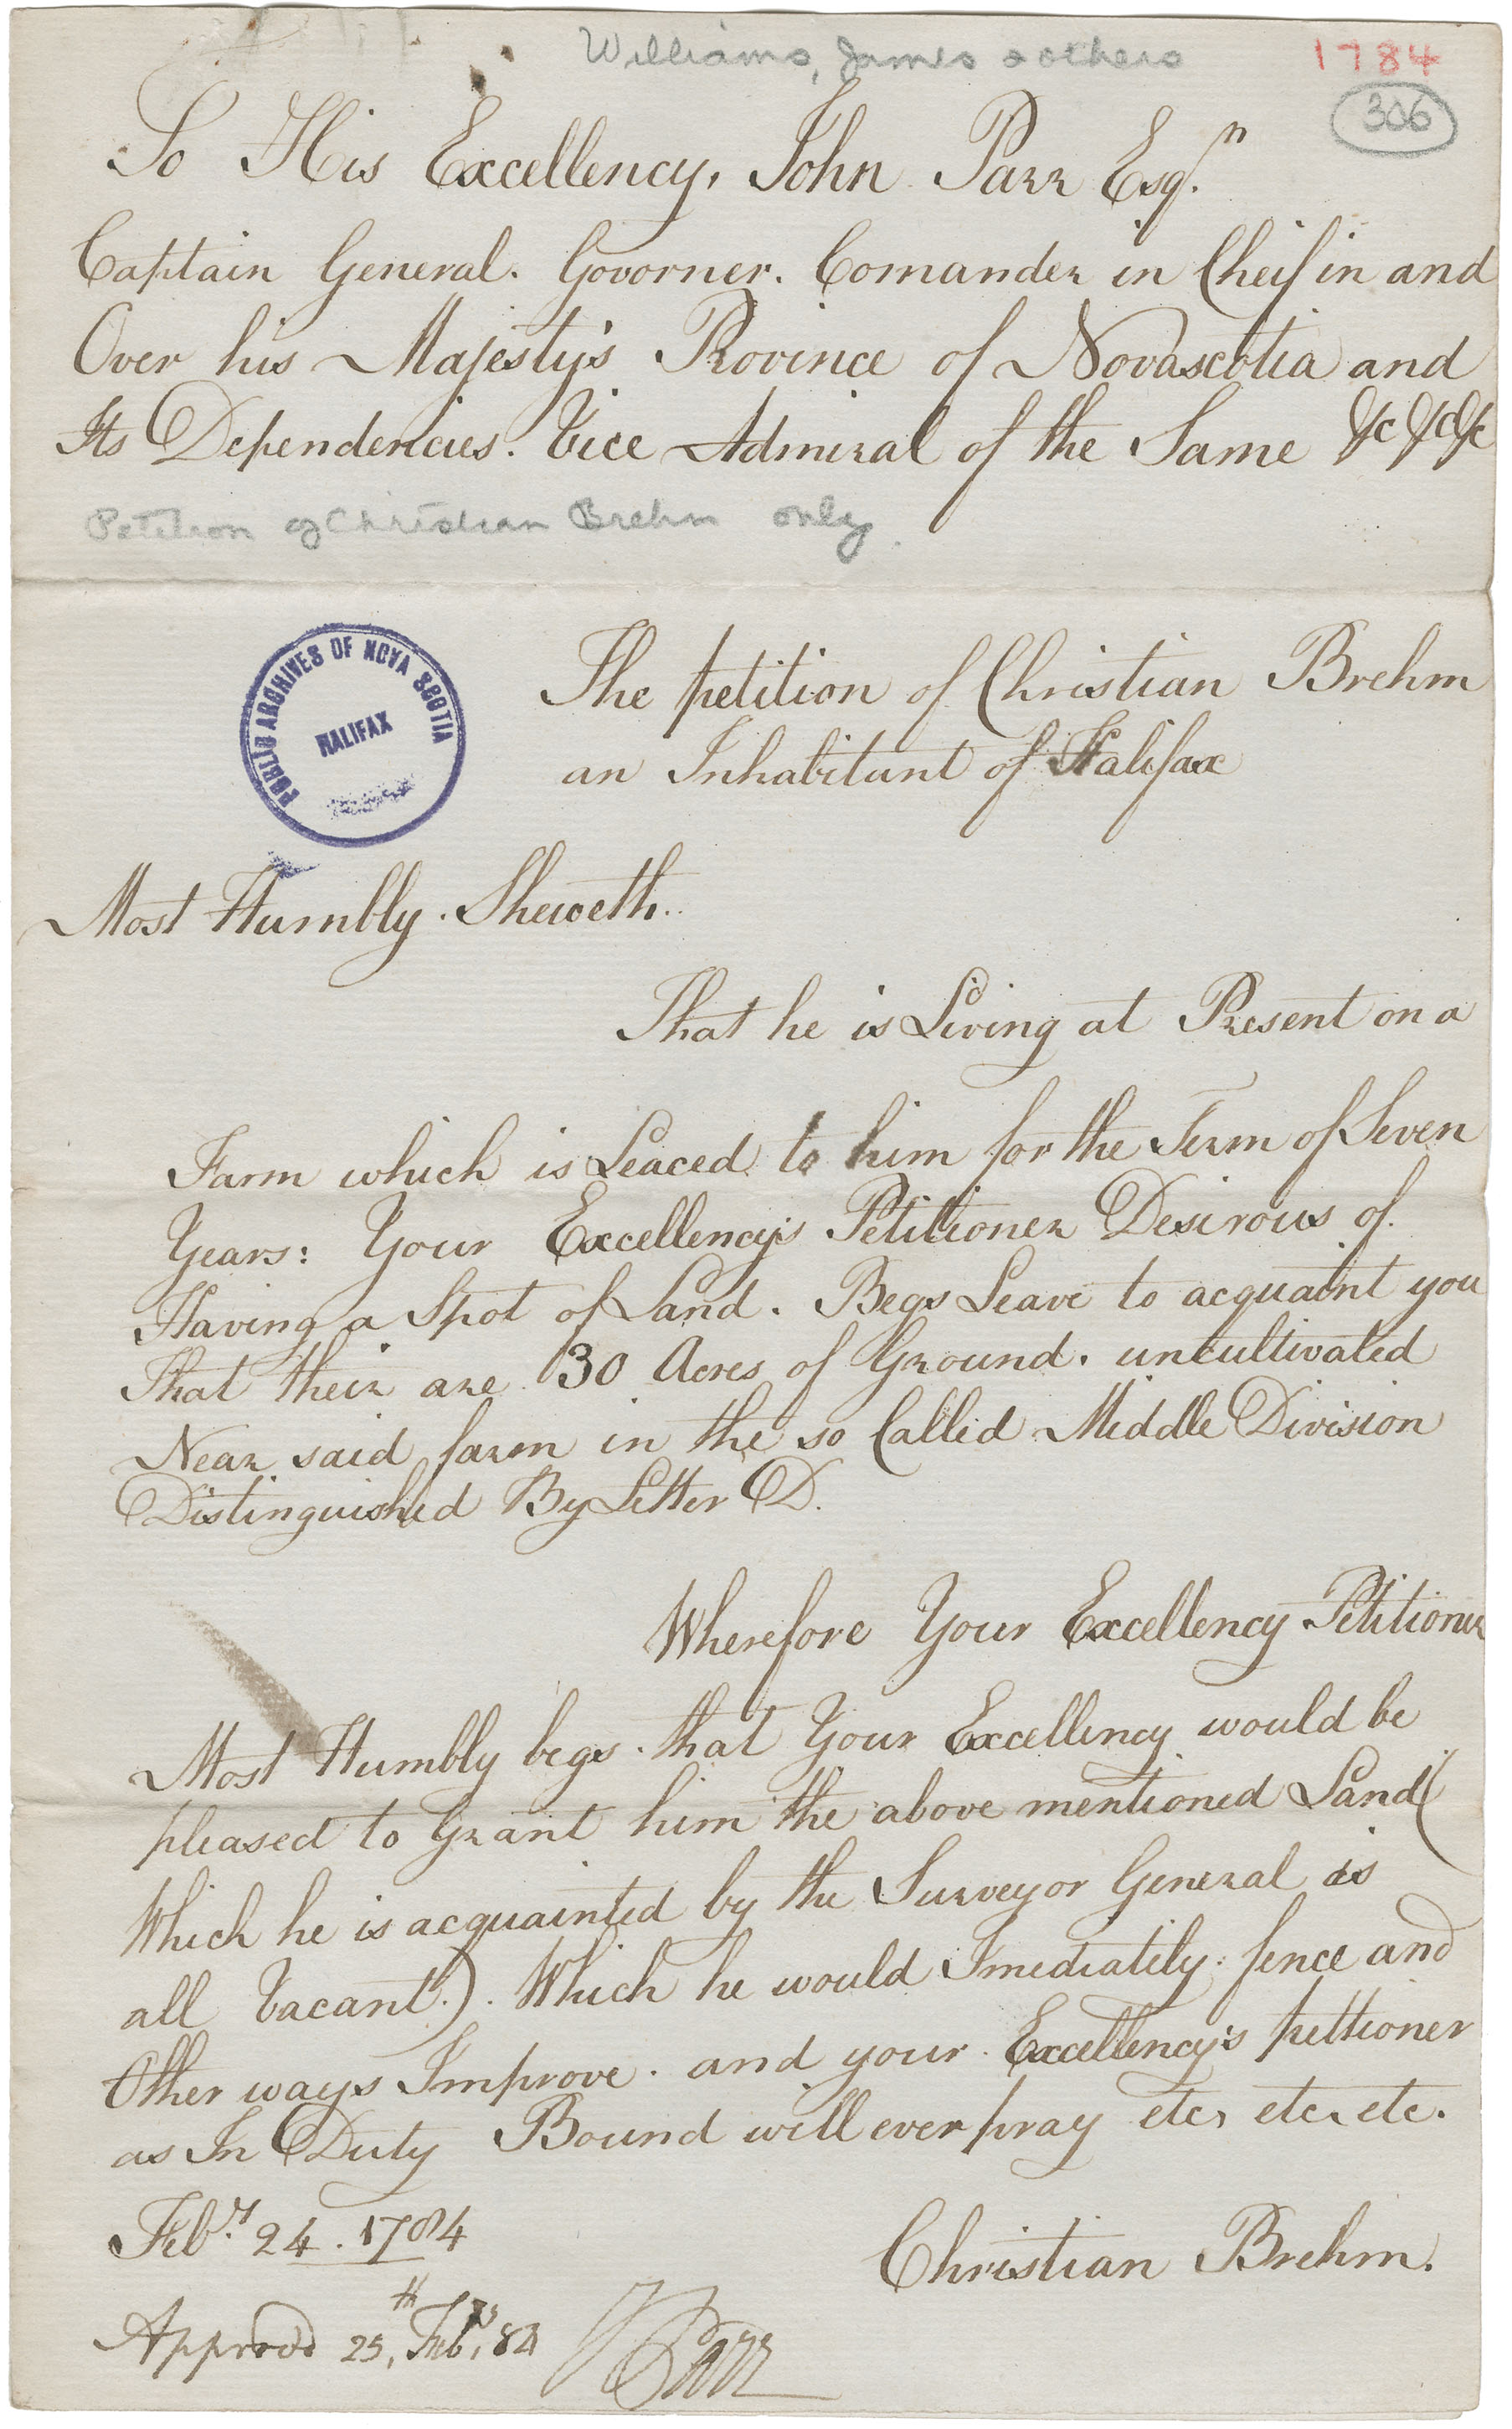 Williams, James & others
1784
306
To His Excellency, John Parr Esqr.
Captain General. Govorner. Comander in Cheif in and
Over his Majesty's Province of Novascotia and
Its Dependencies. Vice Admiral of the Same &c &c &c
Petition of Christian Brehm only.
PUBLIC ARCHIVES OF NOVA SCOTIA
HALIFAX
The petition of Christian Brehm
an Inhabitant of Halifax
Most Humbly. Sheweth..
That he is Living at Present on a
Farm which is Leaced to him for the Term of Seven
Years: Your Excellency's Petitioner Desirous of.
Having a Spot of Land. Begs Leave to acquaint you
That their are 30 Acres of Ground. uncultivated
Near said farm in the so Called Middle Division
Distinguished By Letter D.
Wherefore Your Excellency Petitioner
Most Humbly begs. that Your Excellency would be
pleased to Grant him the above mentioned Land (
Which he is acquainted by the Surveyor General is
all Vacant.). Which he would Imediatily. fence and
Other ways Improve. and your. Excellency's pettioner
as In Duty Bound will ever pray etc, etc, etc.
Feb.ry 24. 1784
Christian Brehm.
Approvd 25th, Feby, 84
J Parr